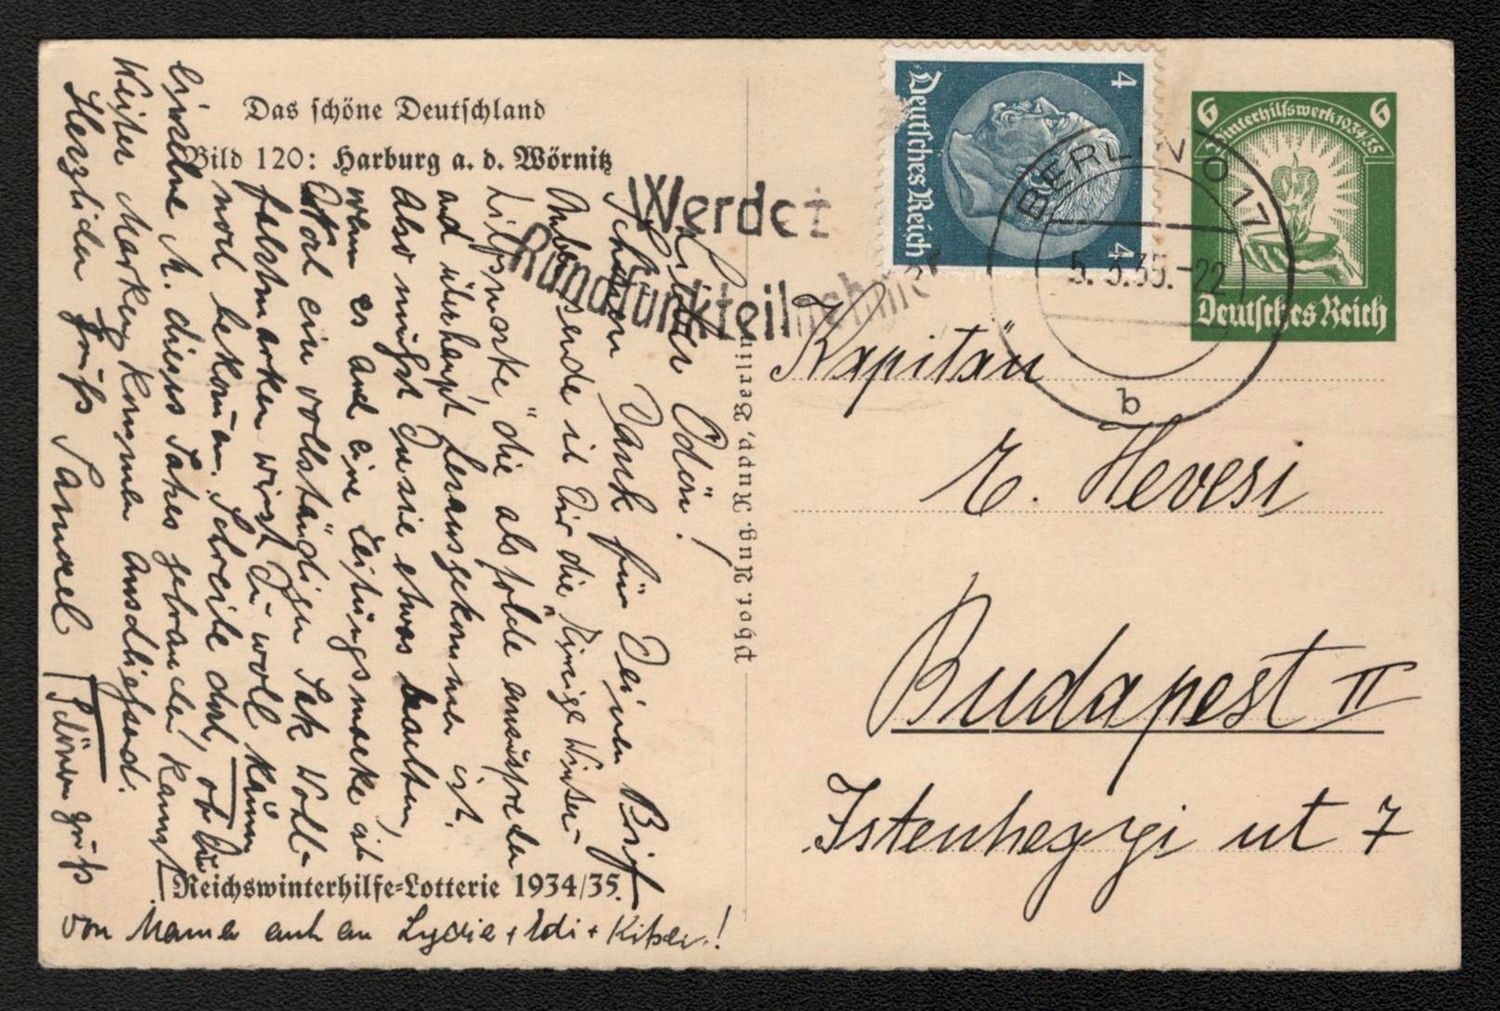 Das schöne Deutschland
Bild 120: Harburg a. d. Wörnitz
Lieber Ödön!
Schönen Dank für Deinen Brief
Anbei sende ich Dir die Winter-
hilfsmarke" die als solche anzusprechen
und überhaupt herausgekommen ist.
Also müsst Du sie etwas
wenn es auch eine Zeitungsmarke ist
ein vollständigen Satz Wohl-
fahrtmarken wirst Du wohl kaum
noch bekommen. Schreibe doch, ob Du
einzelne M. dieses Satzes gebrauchen kannst
Weiter Marken kommen anschließend.
Herzlichen Gruß
Schönen Gruß
von Mama auch an Lydia +
Reichswinterhilfe-Lotterie 1934/35.
Phot Rug. Rupp, Berlin
Werdet
Rundfunkteilnehmer
4
Deutsches Reich
4
BERLIN O 17
5.3.35.-22
q
6 6
Winterhilfswerk 1934/35
Deutsches Reich
Kapitän
E. Hevesi
Budapest II
Istenhegyi ut 7